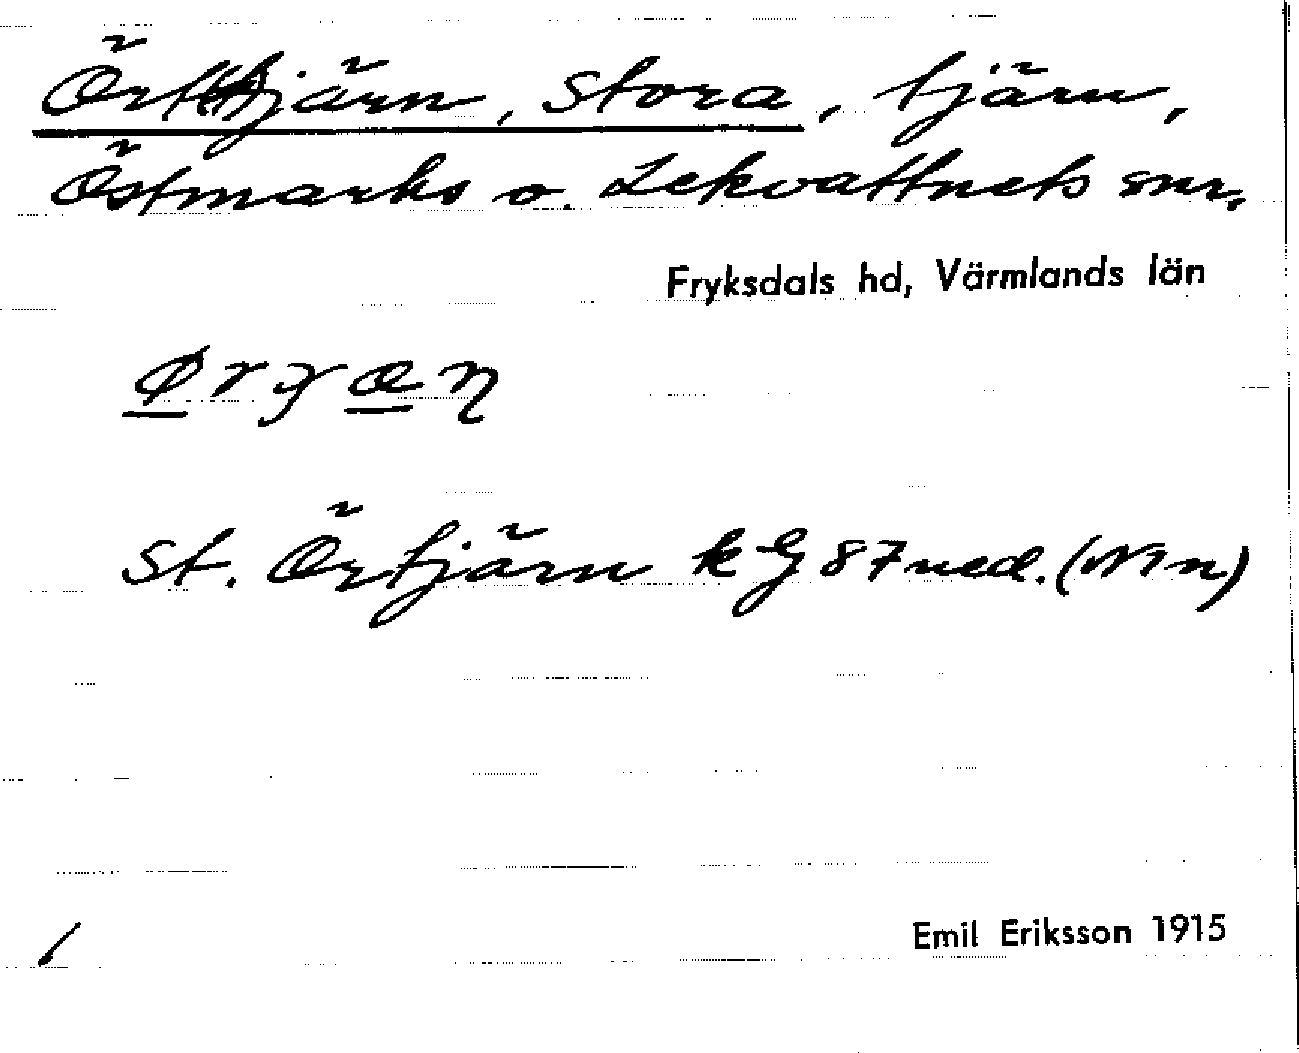 Örttjärn, Stora, tjärn,
Östmarks o. Lekvattnets snr,
Fryksdals hd, Värmlands län
St. Örtjärn kG 87 ned.
Emil Eriksson 1915